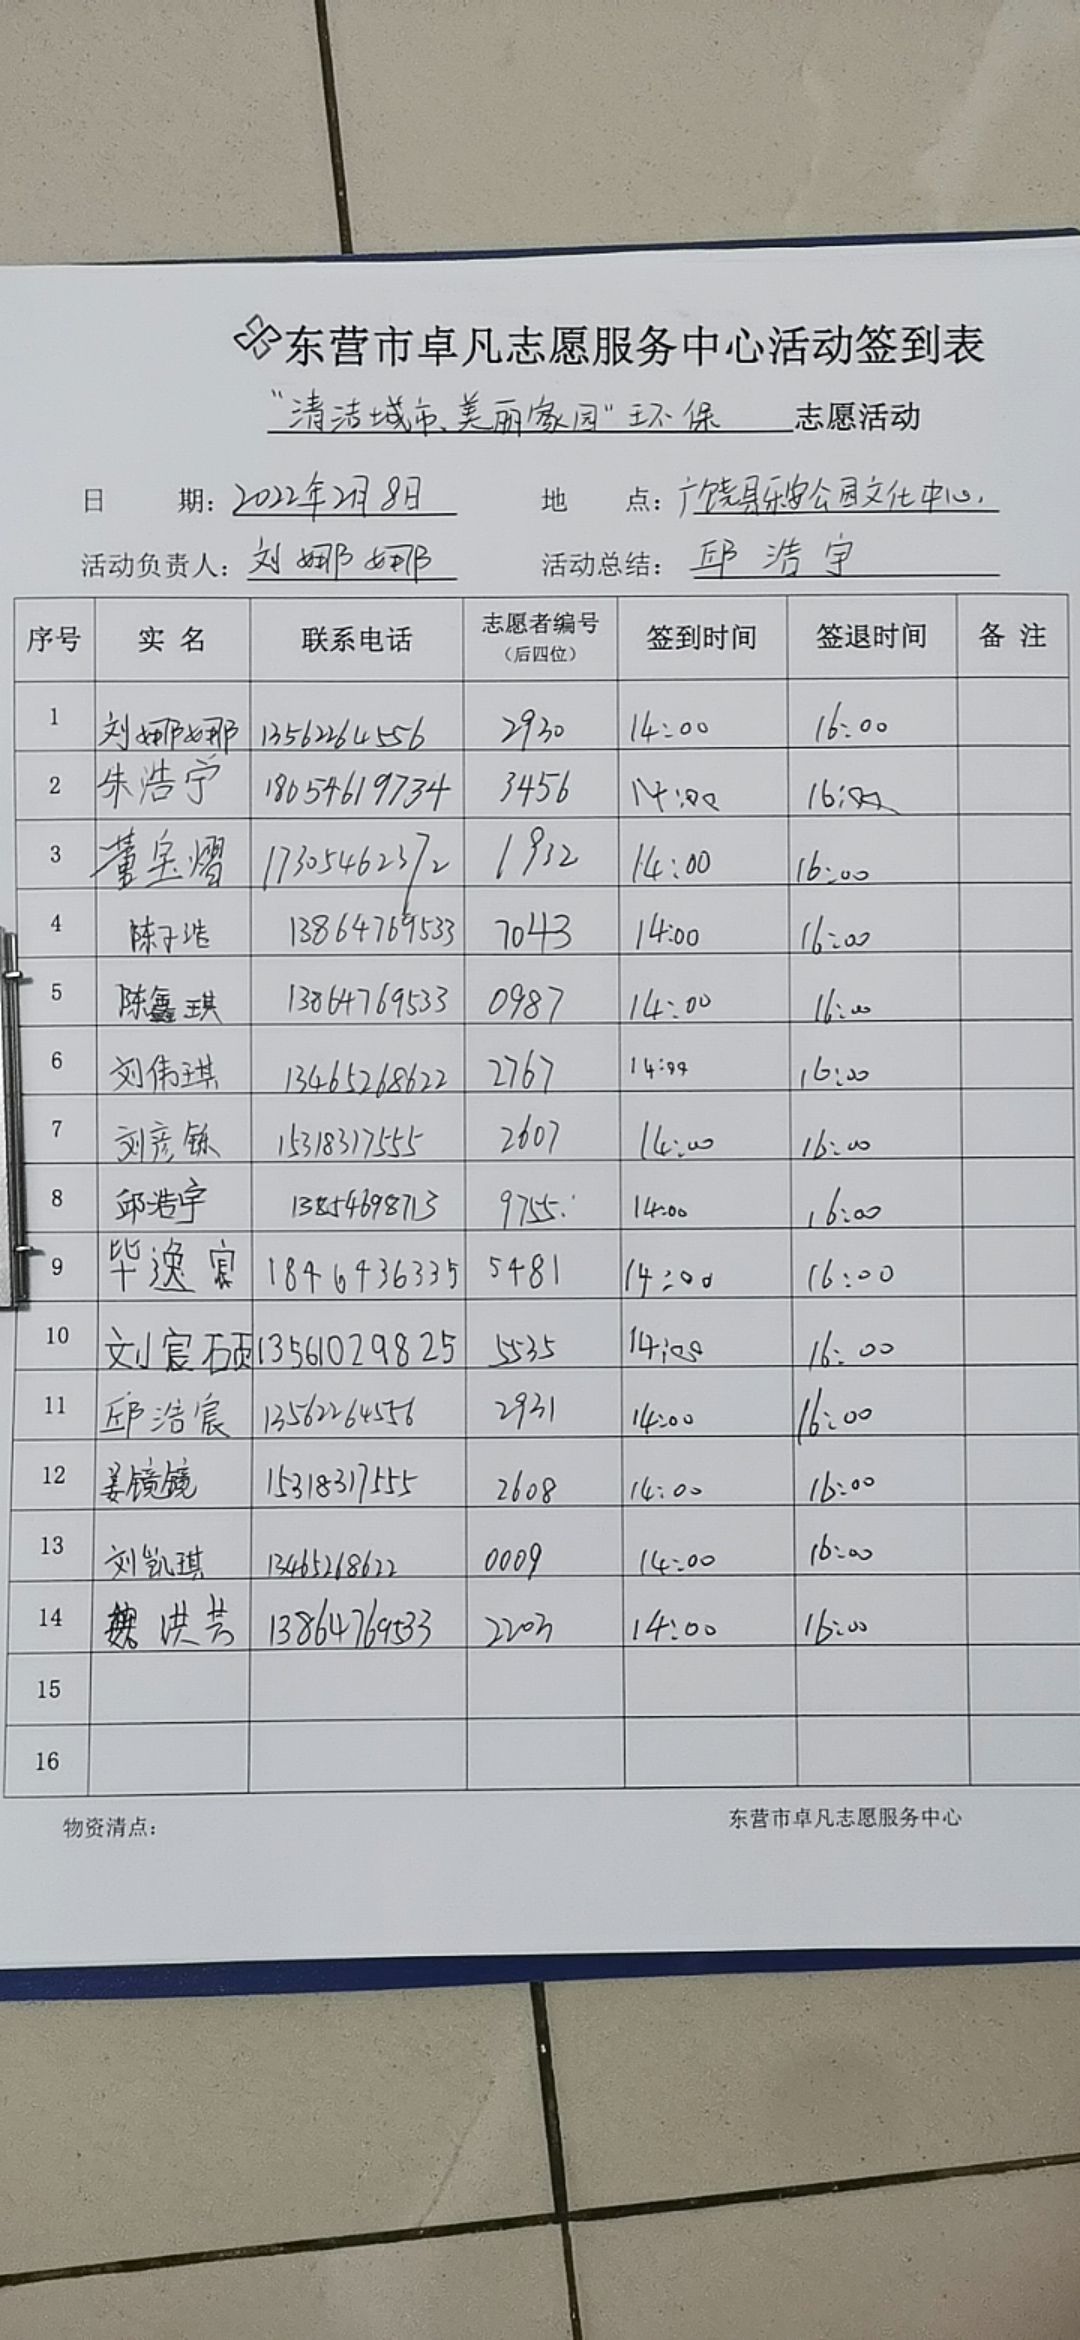 东营市卓凡志愿服务中心活动签到表
“清洁城市、美丽家园”环保 志愿活动
日 期: 2022年2月8日 地 点: 广饶县乐安公园文化中心.
活动负责人: 刘娜娜 活动总结: 邱浩宇
序号 实 名 联系电话 志愿者编号 (后四位) 签到时间 签退时间 备 注
1 刘娜娜 13562264556 2930 14:00 16:00
2 朱浩宁 18654619734 3456 14:00 16:00
3 董宝熠 17305462372 1932 14:00 16:00
4 陈子浩 13864769533 7043 14:00 16:00
5 陈鑫琪 13864769533 0987 14:00 16:00
6 刘伟琪 13465268622 2767 14:00 16:00
7 刘彦铄 15318317555 2607 14:00 16:00
8 邱浩宇 13854698713 9755 14:00 16:00
9 毕逸宸 1846436335 5481 14:00 16:00
10 刘宸硕 13561029825 5535 14:00 16:00
11 邱浩宸 13562264556 2931 14:00 16:00
12 姜镜镜 15318317555 2608 14:00 16:00
13 刘凯琪 13465268622 0009 14:00 16:00
14 魏洪芸 13864769533 2203 14:00 16:00
15
16
物资清点: 东营市卓凡志愿服务中心